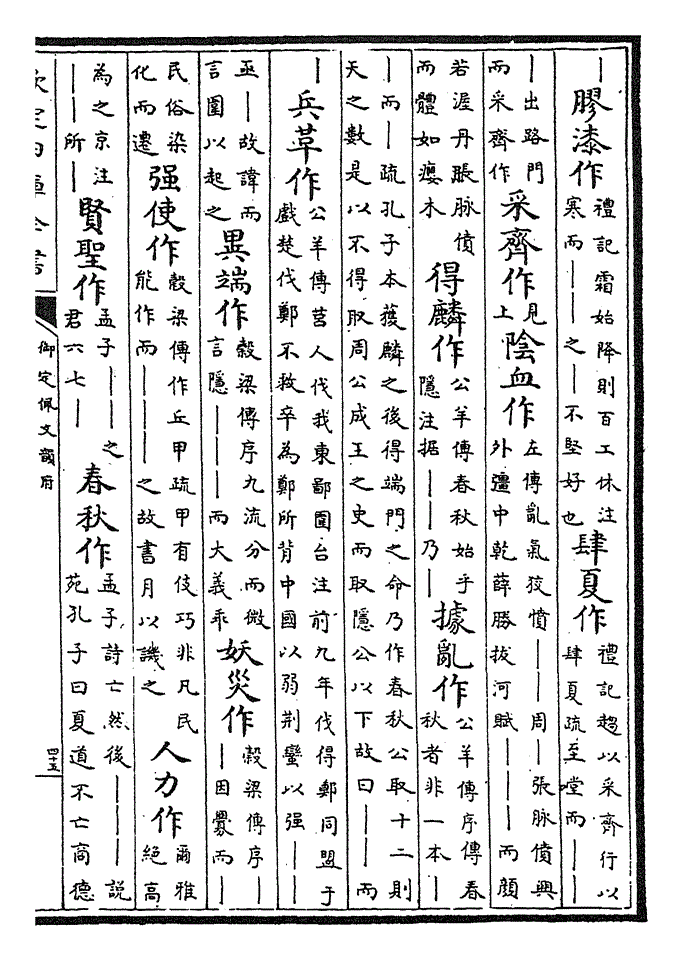 ｜膠漆作禮記霜始降則百工休注寒而｜｜之｜不堅好也肆夏作禮記趨以采齊行以肆夏疏至堂而｜｜
｜出路門而采齊作采齊作見上陰血作左傳亂氣狡憤｜｜周｜張脉僨興外彊中乾薛勝拔河賦｜｜｜而顏
若渥丹脹脉僨而體如癭木得麟作公羊傳春秋始乎隱注据｜｜乃｜據亂作公羊傳序傳春秋者非一本｜
｜而｜疏孔子本獲麟之後得端門之命乃作春秋公取十二則天之數是以不得取周公成王之史而取隱公以下故曰｜｜｜而
｜兵革作公羊傳莒人伐我東鄙圍台注前九年伐得鄭同盟于戲楚伐鄭不救卒為鄭所背中國以弱荊蠻以强｜｜
亟｜故諱而言圍以起之異端作穀梁傳序九流分而微言隱｜｜而大義乖妖災作穀梁傳序｜｜因釁而｜
民俗染化而遷强使作穀梁傳作丘甲疏甲有伎巧非凡民能作而｜｜｜之故書月以譏之人力作爾雅絕高
為之京注｜所｜賢聖作孟子｜｜之君六七｜春秋作孟子詩亡然後｜｜｜說苑孔子曰夏道不亡商德
欽定四庫全書
御定佩文韻府
四十五